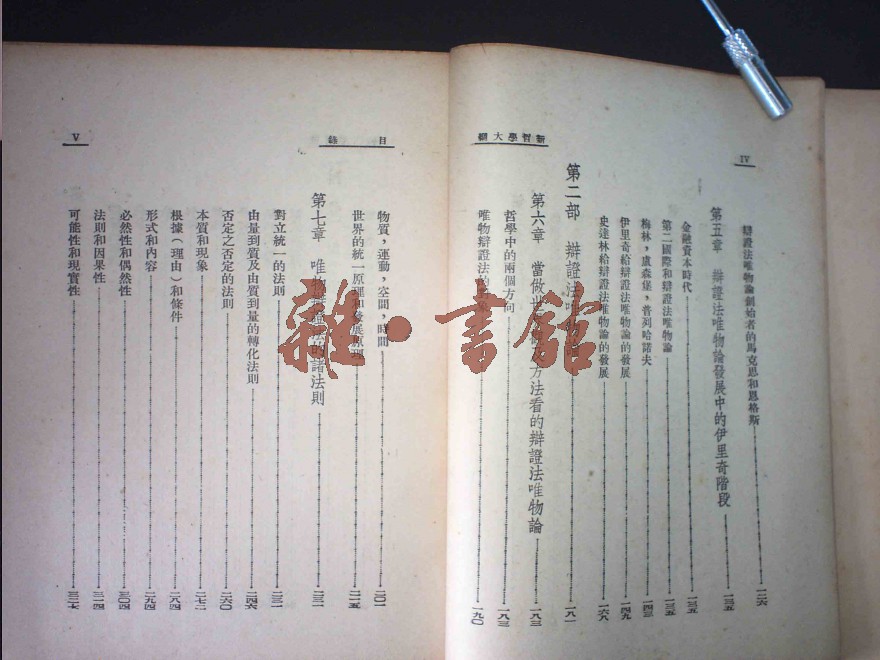 IV
新哲學大綱
辯證法唯物論創始者的馬克思和恩格斯 一二六
第五章 辯證法唯物論發展中的伊里奇階段 一三五
金融資本時代 一三五
第二國際和辯證法唯物論 一三五
梅林，盧森堡，普列哈諾夫 一四三
伊里奇給辯證法唯物論的發展 一四九
史達林給辯證法唯物論的發展 一六八
第二部 辯證法唯物論 一八一
第六章 當做世 方法看的辯證法唯物論 一八三
哲學中的兩個方向 一八三
唯物辯證法的對象 一九〇
目錄
V
物質，運動，空間，時間 二〇一
世界的統一原理和發展原理 二一五
第七章 唯物辯證法的諸法則 二三一
對立統一的法則 二三一
由量到質及由質到量的轉化法則 二四六
否定之否定的法則 二六〇
本質和現象 二七二
根據（理由）和條件 二八四
形式和內容 二九四
必然性和偶然性 三〇四
法則和因果性 三一四
可能性和現實性 三二七
雜·書館